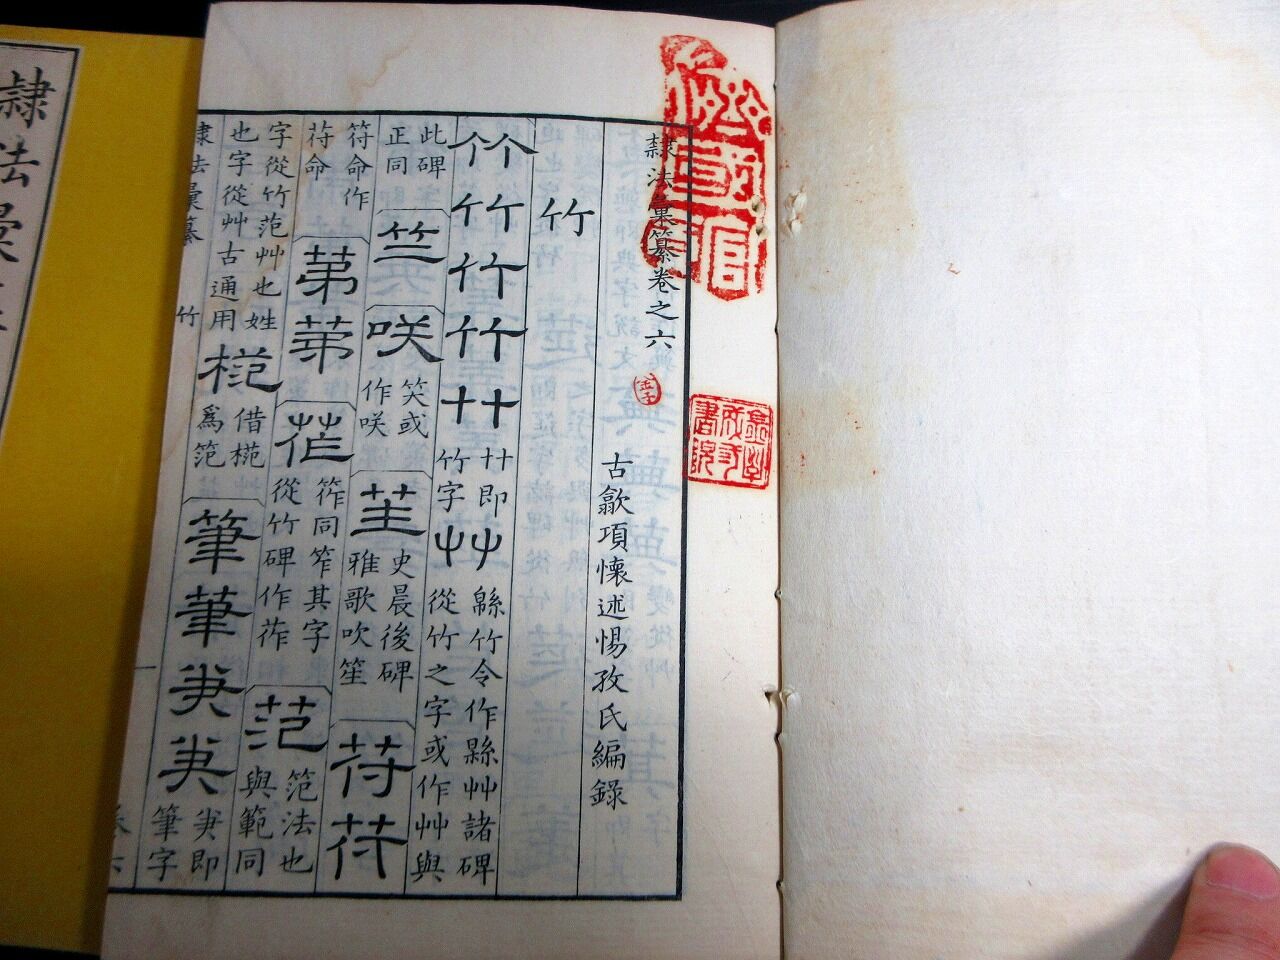 隸法彙纂卷之六
古歙項懷述惕孜氏編錄
竹
竹竹竹竹艹
艹即
竹字
艸
緜竹令作縣艸諸碑
從竹之字或作艸與
此碑
正同
竺
咲
笑或
作咲
史晨後碑
雅歌吹笙
符
符命作
苻命
第
筰同笮其字
從竹碑作莋
范
笵法也
與範同
字從竹范艸也姓
也字從艸古通用
借
爲笵
筆筆
即
筆字
隸法彙纂
竹
一
隸法彙